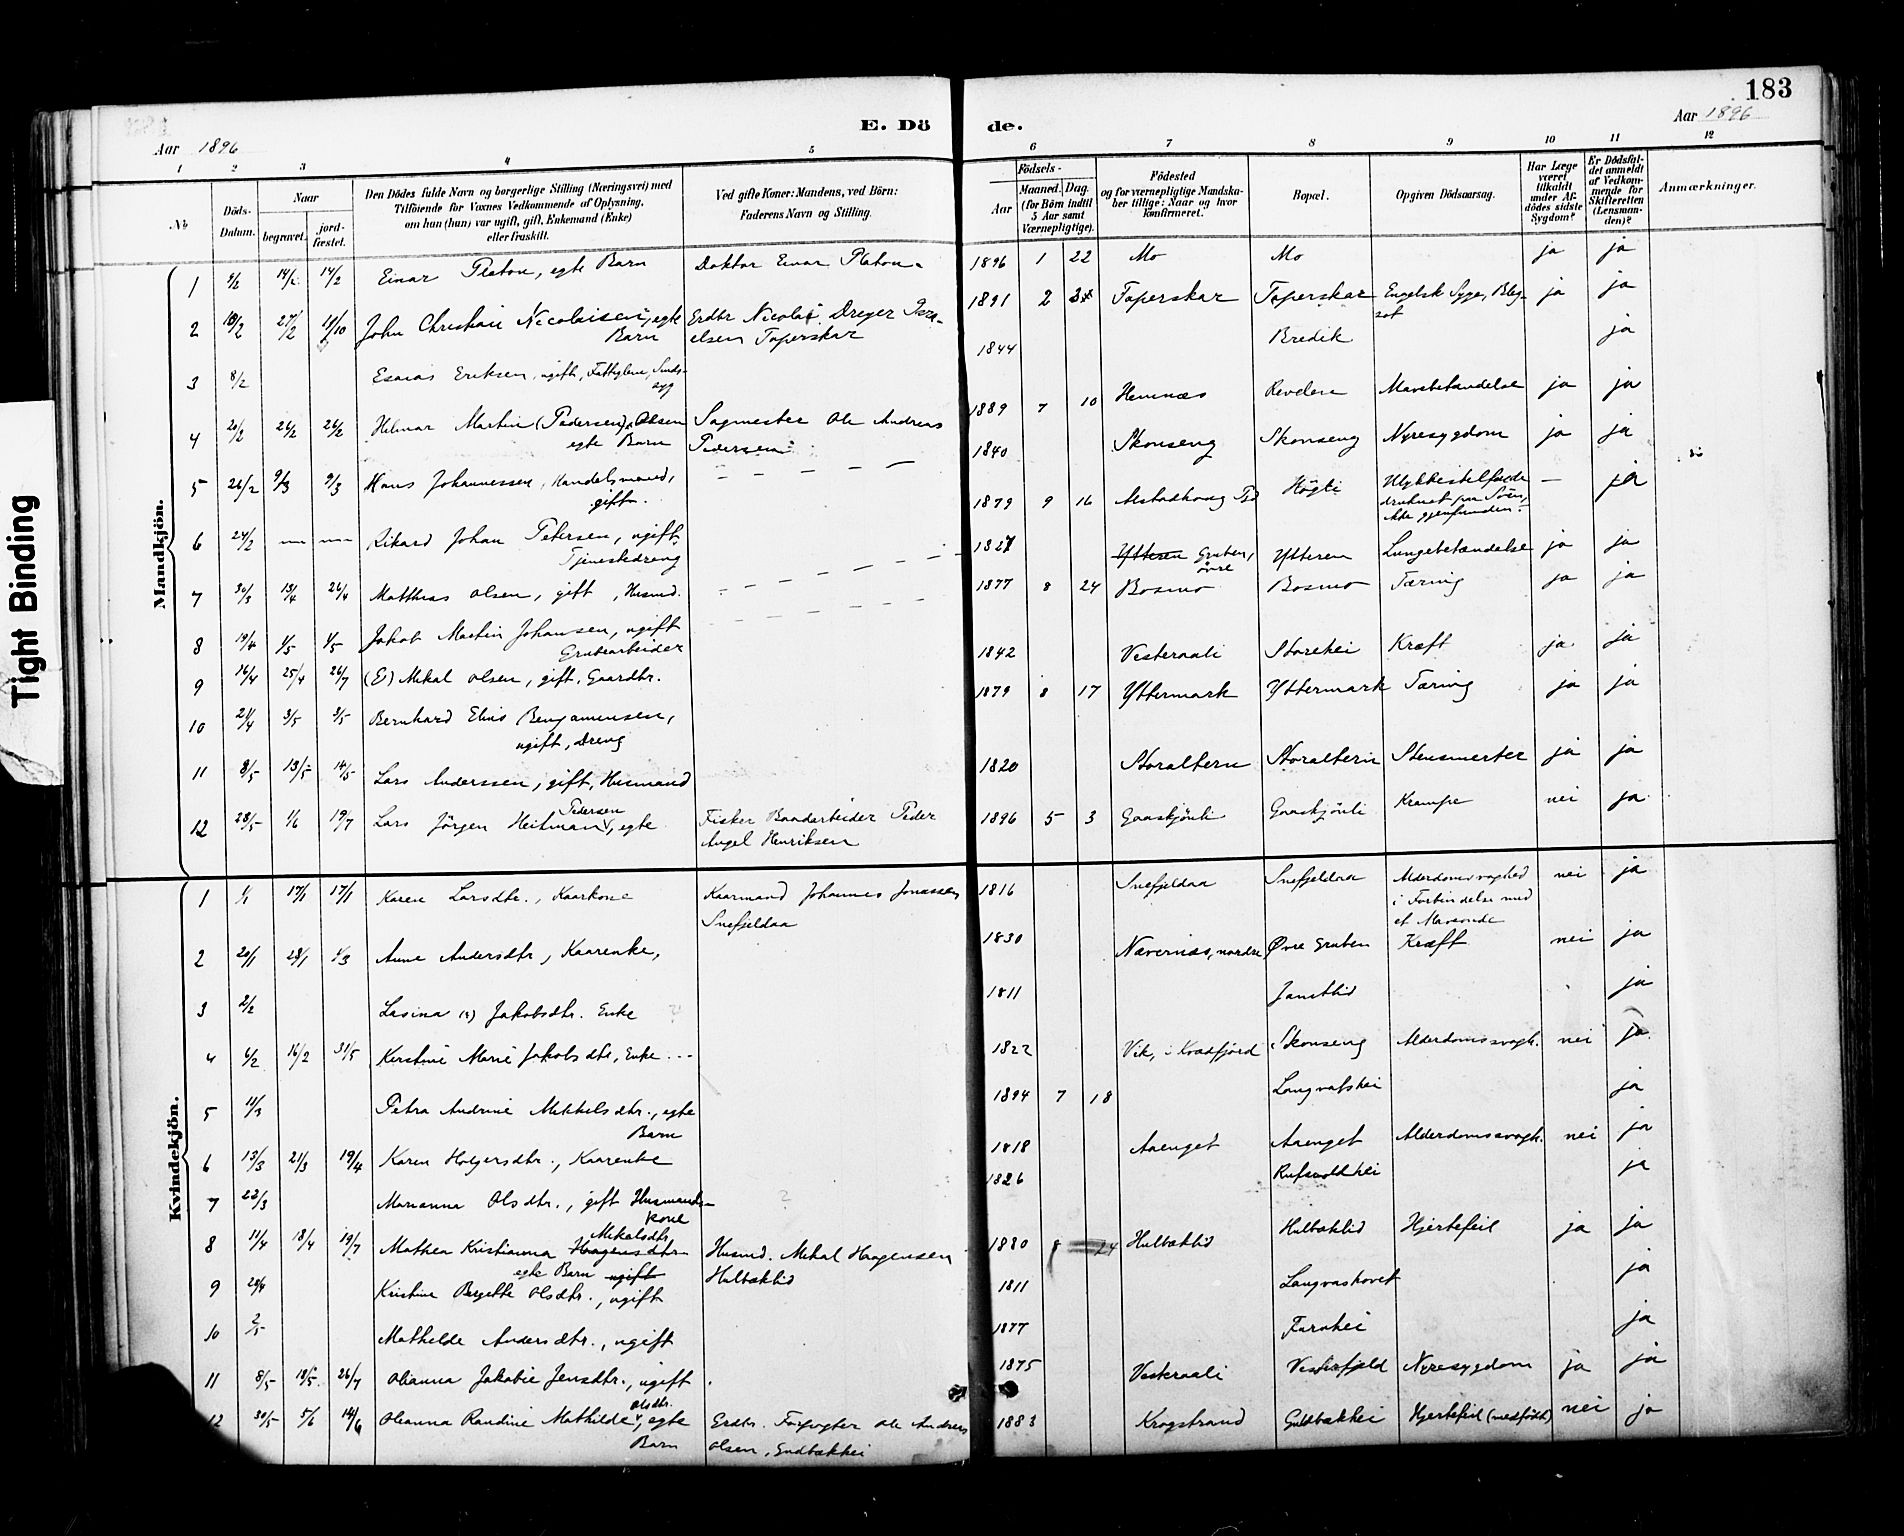 Tight Binding
183
E. Dö de.
Aar 1896
Aar 1896
1 2 3 4 5 6 7 8 9 10 11 12
No
Döds-Datum.
Naar
begravet.
jord-fæstet.
Den Dödes fulde Navn og borgerlige Stilling (Næringsvei) med
Tilföiende for Voxnes Vedkommende af Oplysning,
om han (hun) var ugift, gift, Enkemand (Enke)
eller fraskilt.
Ved gifte Koner: Mandens, ved Börn:
Faderens Navn og Stilling.
Födsels-
Aar
Maaned. Dag.
(for Börn indtil
5 Aar samt
Værnepligtige).
Födested
og for værnepligtige Mandska-
ber tillige: Naar og hvor
Konfirmeret.
Bopæl.
Opgiven Dödsaarsag.
Har Læge
været
tilkaldt
under Af-
dödes sidste
Sygdom?
Er Dödsfal-
det anmeldt
af Vedkom-
mende for
Skifteretten
(Lensman-
den)?
Anmærkninger.
Mandkjön.
1 14/2 Einar Platou, egte Barn Doktor Einar Platou. 1896 1 22 Mo Mo ja ja
2 18/2 27/2 11/10 John Christian Nicolaisen, egte Erdbr Nicolai Dreyer Isra- 1891 2 Toperskar Toperskar Engelsk Syge, Bleg- ja ja
Barn elsen Toperskar sot
3 8/2 Esaias Eriksen, ugift, Fattiglem, Sinds- 1844 Bredik ja
syg
4 20/2 26/2 26/2 Hilmar Martin (Pedersen) Olsen Sagmester Ole Andreas 1889 7 10 Hemnæs Revelen Mavebetændelse ja ja
egte Barn Pedersen
5 26/2 9/3 9/3 Hans Johannessen, Handelsmand, 1840 Skonseng Skonseng Nyresygdom ja ja
gift.
6 24/2 — — Rikard Johan Petersen, ugift, 1879 9 16 Alstadhoug Högli Ulykkestilfælde — ja
Tjenestedreng druknet paa Söen,
ikke gjenfunden.
7 30/3 13/4 26/4 Matthias Olsen, gift, Husmd. 1827 Ytteren Gruben, Ytteren Lungebetændelse ja ja
övre
8 19/4 1/5 1/5 Jakob Martin Johansen, ugift 1877 8 24 Bosmo Bosmo Tæring ja ja
Grubearbeider
9 16/4 25/4 26/7 (E) Mikal Olsen, gift, Gaardbr. 1842 Vesteraali Storehei Kræft ja ja
10 21/4 3/5 3/5 Bernhard Elias Benjaminsen, 1879 8 17 Yttermark Yttermark Tæring ja ja
ugift, dreng
11 8/5 13/5 14/5 Lars Anderssen, gift, Husmand 1820 Storaltern Storaltern Stensmerter ja ja
Pedersen
12 28/5 1/6 19/7 Lars Jörgen Heitman, egte Fisker Baadarbeider Peder 1896 5 3 Gaaskjönli Gaaskjönli Krampe nei ja
Angel Henriksen
Kvindekjön.
1 1/1 17/1 17/1 Karen Larsdtr., Kaarkone Kaarmand Johannes Jonassen 1816 Snefjeldaa Snefjeldaa Alderdomssvaghed nei ja
Snefjeldaa i Forbindelse med
et Maveonde
2 20/1 28/1 1/3 Anne Andersdtr, Kaarenke, 1830 Nævernæs, nordre Øvre Gruben Kræft nei ja
3 2/2 Lasina (?) Jakobsdtr. Enke 1811 ja
4 6/2 16/2 31/5 Kirstine Marie Jakobsdtr, Enke 1822 Vik, i Kvædfjord Skonseng Alderdomssvagh. nei ja
5 11/3 Petra Andrine Mikkelsdtr., egte 1894 7 18 Langvatshei ja
Barn
6 13/3 21/3 19/4 Karen Holgersdtr., Kaarenke 1818 Aaenget Aaenget Alderdomssvagh. nei ja
7 22/3 Marianna Olsdtr., gift Husmands- ? 1826 ja
kone
Mikalsdtr.
8 11/4 18/4 19/7 Mathea Kristianna Haagensdtr Husmd. Mikal Haagensen 1880 8 24 Hulbæklid Hulbæklid Hjertefeil ja ja
egte Barn ugift Hulbæklid
9 20/4 Kristine Bergette Olsdtr., ugift 1811 ja
10 2/5 Mathilde Andersdtr., ugift 1877 Furuhei ja
11 8/5 18/5 26/7 Olianna Jakobie Jensdtr., ugift 1875 Vesteraali Vesterfjeld Nyresygdom ja ja
Olsdtr.
12 30/5 5/6 14/6 Olianna Randine Mathilde, egte Erdbr. Forpagter Ole Andreas 1883 Krogstrand Guldbækhei Hjertefeil (medfödt) nei ja
Barn Olsen,